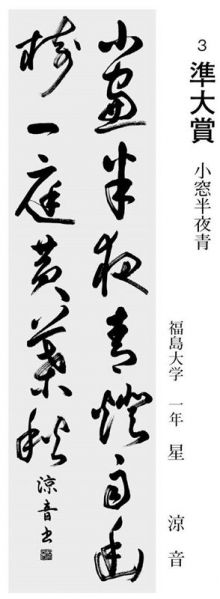 3 準大賞
小窓半夜青
福島大学 一年 星 涼音
小窓半夜青燈雨幽
樹一庭黄葉秋
涼音書